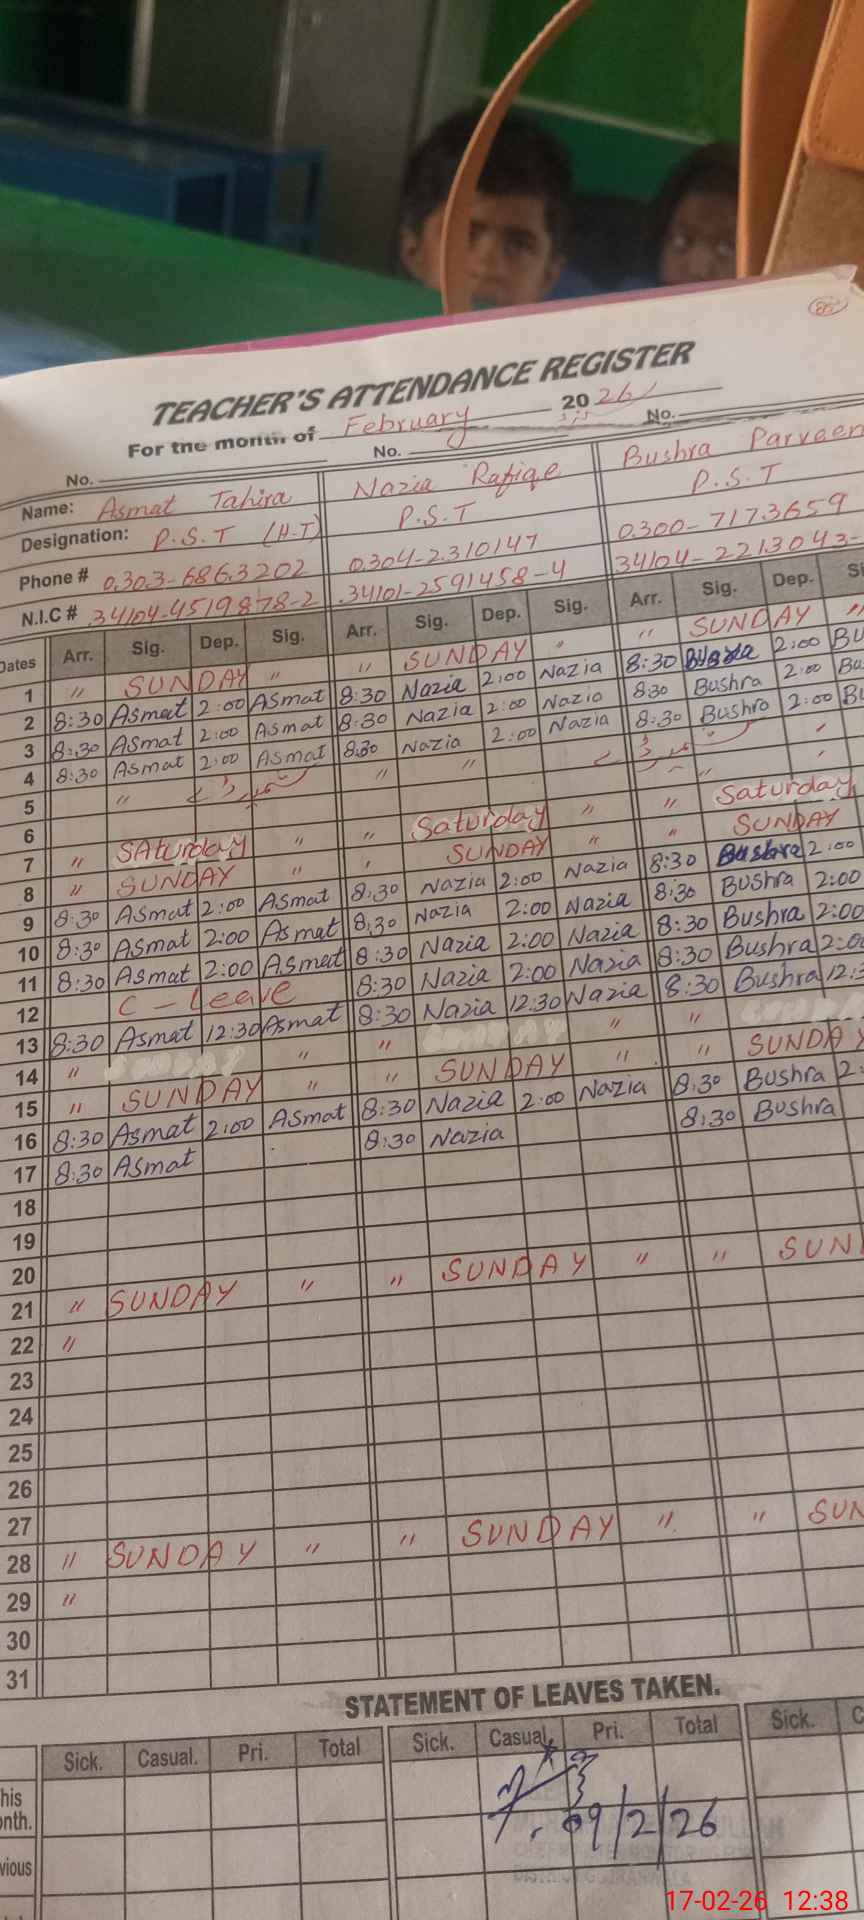 25
TEACHER'S ATTENDANCE REGISTER
For the month of February 2026
No. No. No.
Name: Asmat Tahira Nazia Rafiqe Bushra Parveen
Designation: P.S.T (H-T) P.S.T P.S.T
Phone # 0303-6863202 0304-2310147 0300-7173659
N.I.C # 34104-4519878-2 34101-2591458-4 34104-2213043-
Dates Arr. Sig. Dep. Sig. Arr. Sig. Dep. Sig. Arr. Sig. Dep. Si
1 " SUNDAY " " SUNDAY " " SUNDAY "
2 8:30 Asmat 2:00 Asmat 8:30 Nazia 2:00 Nazia 8:30 Bushra 2:00 BU
3 8:30 Asmat 2:00 Asmat 8:30 Nazia 2:00 Nazia 8:30 Bushra 2:00 Bu
4 8:30 Asmat 2:00 Asmat 8:30 Nazia 2:00 Nazia 8:30 Bushra 2:00 Bu
5 " " " "
6
7 " SAturday " " Saturday " " Saturday
8 " SUNDAY " " SUNDAY " " SUNDAY
9 8:30 Asmat 2:00 Asmat 8:30 Nazia 2:00 Nazia 8:30 Bushra 2:00
10 8:30 Asmat 2:00 Asmat 8:30 Nazia 2:00 Nazia 8:30 Bushra 2:00
11 8:30 Asmat 2:00 Asmat 8:30 Nazia 2:00 Nazia 8:30 Bushra 2:00
12 C-Leave 8:30 Nazia 2:00 Nazia 8:30 Bushra 2:00
13 8:30 Asmat 12:30 Asmat 8:30 Nazia 12:30 Nazia 8:30 Bushra 12:3
14 " " " " "
15 " SUNDAY " " SUNDAY " " SUNDAY
16 8:30 Asmat 2:00 Asmat 8:30 Nazia 2:00 Nazia 8:30 Bushra 2:
17 8:30 Asmat 8:30 Nazia 8:30 Bushra
18
19
20
21 " SUNDAY " " SUNDAY " " SUN
22 "
23
24
25
26
27
28 " SUNDAY " " SUNDAY " " SUN
29 "
30
31
STATEMENT OF LEAVES TAKEN.
Sick. Casual. Pri. Total Sick. Casual. Pri. Total Sick. C
his
onth.
09/2/26
vious
17-02-26 12:38